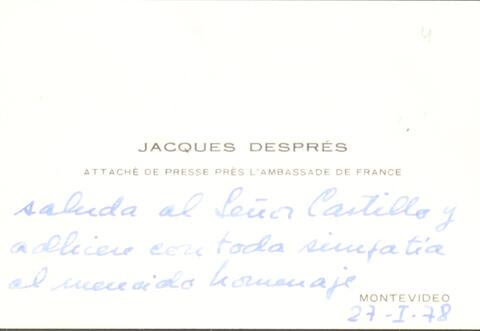 JACQUES DESPRÉS
ATTACHÉ DE PRESSE PRÈS L'AMBASSADE DE FRANCE
saluda al Señor Castillo y
adhiere con toda simpatía
al merecido homenaje
MONTEVIDEO
27-I-78